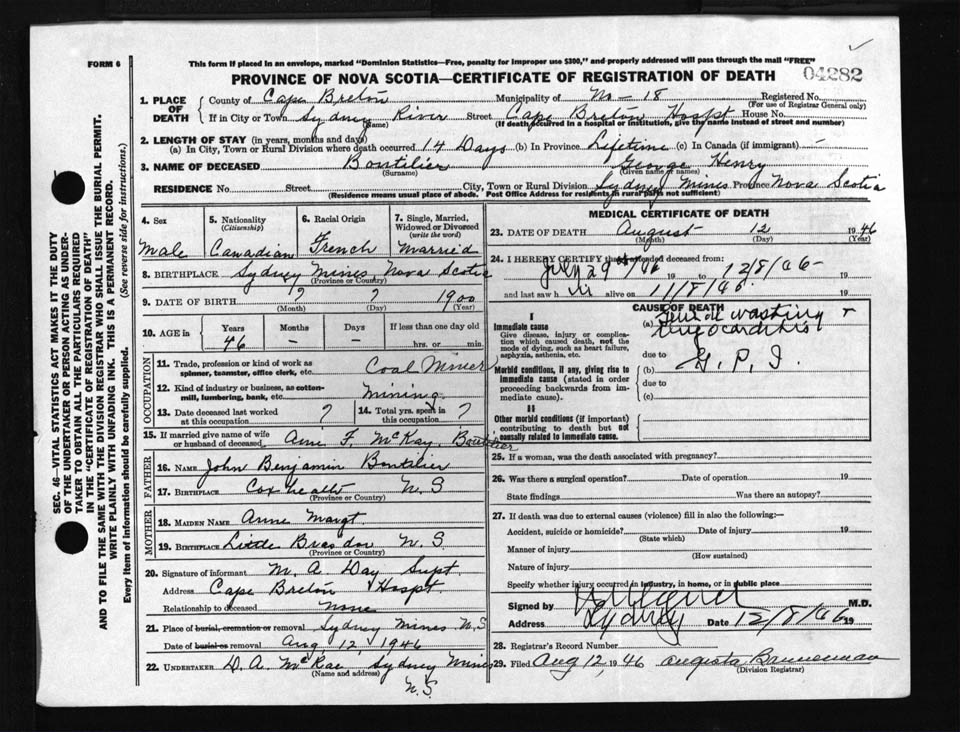 FORM 6
This form if placed in an envelope, marked "Dominion Statistics—Free, penalty for improper use $300," and properly addressed will pass through the mail "FREE"
PROVINCE OF NOVA SCOTIA—CERTIFICATE OF REGISTRATION OF DEATH
04282
1. PLACE OF DEATH
County of Cape Breton Municipality of No-18 Registered No.
(For use of Registrar General only)
If in City or Town Sydney River Street Cape Breton Hospt House No.
(Name) (If death occurred in a hospital or institution, give the name instead of street and number)
2. LENGTH OF STAY (in years, months and days)
(a) In City, Town or Rural Division where death occurred 14 Days (b) In Province Lifetime (c) In Canada (if immigrant) -
3. NAME OF DECEASED Boutilier George Henry
(Surname) (Given name or names)
RESIDENCE No. Street City, Town or Rural Division Sydney Mines Province Nova Scotia
(Residence means usual place of abode. Post Office Address for residents in rural parts not sufficient)
4. Sex
Male
5. Nationality
(Citizenship)
Canadian
6. Racial Origin
French
7. Single, Married, Widowed or Divorced
(write the word)
Married
8. BIRTHPLACE Sydney Mines, Nova Scotia
(Province or Country)
9. DATE OF BIRTH ? ? 1900
(Month) (Day) (Year)
10. AGE in Years Months Days If less than one day old
46 – – hrs. or min.
OCCUPATION
11. Trade, profession or kind of work as spinner, teamster, office clerk, etc. Coal Miner
12. Kind of industry or business, as cotton-mill, lumbering, bank, etc. Mining
13. Date deceased last worked at this occupation ? 14. Total yrs. spent in this occupation ?
15. If married give name of wife or husband of deceased Anne F. McKay, Boutilier
FATHER
16. NAME John Benjamin Boutilier
17. BIRTHPLACE Coxheath N.S
(Province or Country)
MOTHER
18. MAIDEN NAME Anne Margt
19. BIRTHPLACE Little Brasdor N.S.
(Province or Country)
20. Signature of informant M. A. Day Supt.
Address Cape Breton Hospt.
Relationship to deceased None
21. Place of burial, cremation or removal Sydney Mines N.S
Date of burial or removal Aug 12, 1946
22. UNDERTAKER D. A. McRae Sydney Mines
(Name and address)
N.S.
MEDICAL CERTIFICATE OF DEATH
23. DATE OF DEATH August 12 1946
(Month) (Day) (Year)
24. I HEREBY CERTIFY that I attended deceased from:
July 29 /46 19 to 12/8/46 19
and last saw h im alive on 11/8/46 19
CAUSE OF DEATH
I
Immediate cause
Give disease, injury or complication which caused death, not the mode of dying, such as heart failure, asphyxia, asthenia, etc.
(a) wasting + Myocarditis
due to
Morbid conditions, if any, giving rise to immediate cause (stated in order proceeding backwards from immediate cause).
(b) G. P. I
due to
(c)
II
Other morbid conditions (if important) contributing to death but not causally related to immediate cause.
25. If a woman, was the death associated with pregnancy?
26. Was there a surgical operation? Date of operation 19
State findings Was there an autopsy?
27. If death was due to external causes (violence) fill in also the following:—
Accident, suicide or homicide? Date of injury 19
(State which)
Manner of injury
(How sustained)
Nature of injury
Specify whether injury occurred in industry, in home, or in public place
Signed by M.D.
Address Sydney Date 12/8/46 19
28. Registrar's Record Number
29. Filed Aug 12, 1946 Augusta Bannerman
(Division Registrar)
SEC. 46—VITAL STATISTICS ACT MAKES IT THE DUTY
OF THE UNDERTAKER OR PERSON ACTING AS UNDER-
TAKER TO OBTAIN ALL THE PARTICULARS REQUIRED
IN THE "CERTIFICATE OF REGISTRATION OF DEATH"
AND TO FILE THE SAME WITH THE DIVISION REGISTRAR WHO SHALL ISSUE THE BURIAL PERMIT.
WRITE PLAINLY WITH UNFADING INK. THIS IS A PERMANENT RECORD.
Every item of information should be carefully supplied. (See reverse side for instructions.)